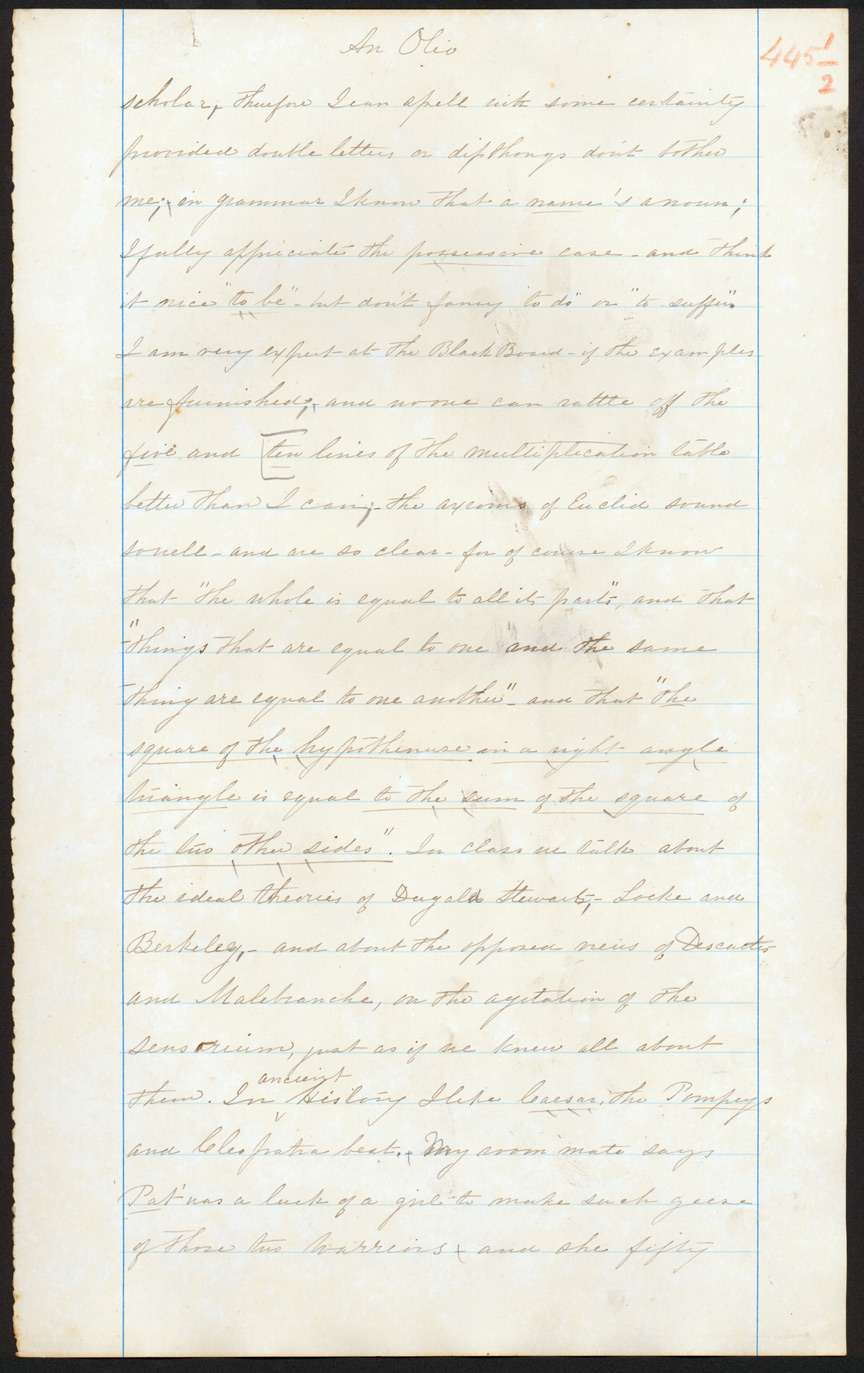 An Olio
445 1/2
scholar, therefore I can spell with some certainty
provided double letters or dipthongs don't bother
me; in grammar I know that a name's a noun;
I fully appreciate the possessive case - and think
it nice "to be" - but don't fancy "to do" or "to suffer".
I am very expert at the Black Board - if the examples
are furnished, and no one can rattle off the
five and [ten lines of the multiplication table
better than I can; - the axioms of Euclid sound
so well - and are so clear - for of course I know
that "the whole is equal to all its parts", and that
"things that are equal to one and the same
thing are equal to one another" - and that "the
square of the hypothenuse in a right angle
triangle is equal to the sum of the square of
the two other sides". In class we talk about
the ideal theories of Dugald Stewart, - Locke and
Berkeley, - and about the opposed views of Descartes
and Malebranche, on the agitation of the
sensorium, just as if we knew all about
them. In ancient History I like Caesar, the Pompeys
and Cleopatra best. My room mate says
Pat 'was a luck of a girl to make such geese
of those two warriors and she fifty